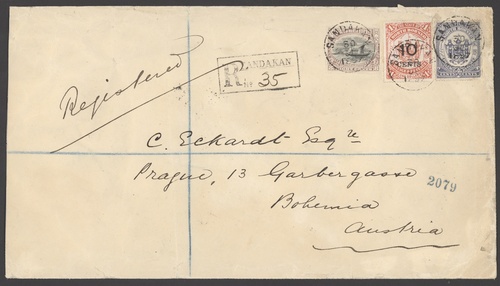 SANDAKAN
10
CENTS
R SANDAKAN
No 35
Registered
C. Eckardt Esqre
Prague, 13 Garbergasse
2079
Bohemia
Austria